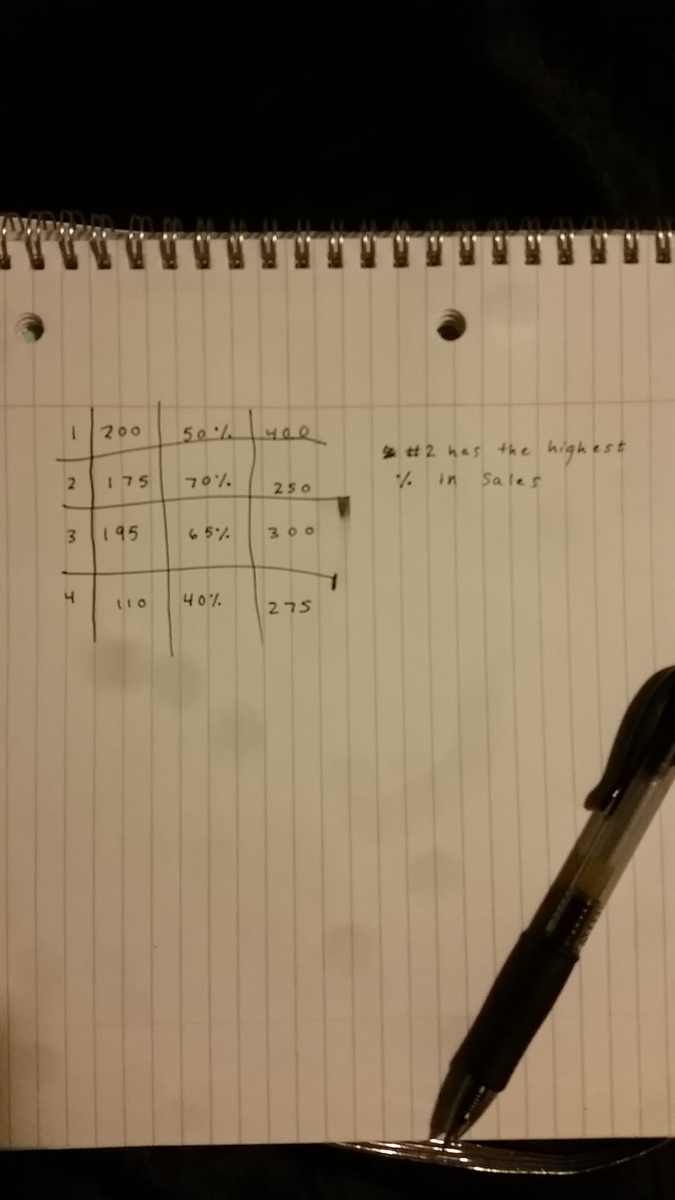 1 200 50% 400
2 175 70% 250
3 195 65% 300
4 110 40% 275
#2 has the highest
% in Sales